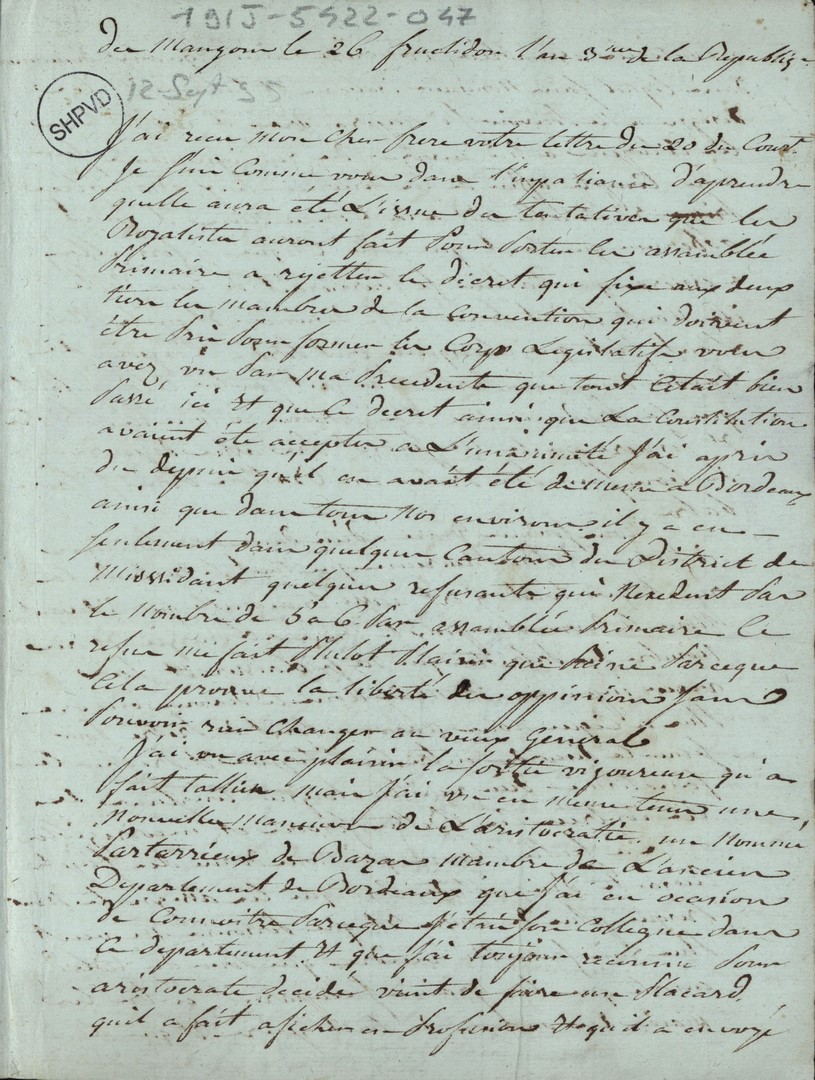 191J-5422-047
du Mangom le 26 fructidor l'an 3me de la Republiq
SHPVD
12 Sept 95
J'ai recu mon cher frere votre lettre du 20 du Court.
Je suis comme vous dans l'impatiance d'aprendre
quelle aura été L'issue des tentatives que les
Royalistes auront fait Pour Porter les assemblée
Primaire a rejetter le décret qui fixe aux deux
tiers les mambres de la Convention qui doivent
être Pris Pour former les Corps Legislatifs vous
avez vu Par ma Precedente que tout était bien
Passé ici et que le decret ainsi que La Constitution
avaient été accepter a L'unanimité J'ai apris
du depuis qu'il en avait été de meme a Bordeaux
ainsi que dans tous nos environs, il y a eu
seulement dans quelques Cantons du District de
Mussidant quelques refusants qui Nexedent Par
le Nombre de 5 a 6 Par assemblée Primaire Ce
refus me fait Plutot Plaisir que Peine Parceque
Cela prouve la liberté des oppinions sans
Pouvoir rien changer au veux General
J'ai vu avec plaisir la sortie vigoureuse qu'a
fait tallien mais j'ai vu en meme tems une
Nouvelle maneuvre de L'aristocratie. un nommé
Partarrieux de Bazas mambre de L'ancien
Departement de Bordeaux que J'ai eu ocasion
de Connoitre Parceque J'etais son Collegue dans
Ce departement et que j'ai toujour reconnu Pour
aristocrate decidé vient de faire un Placard
quil a fait aficher en Profusion et qu'il a envoyé